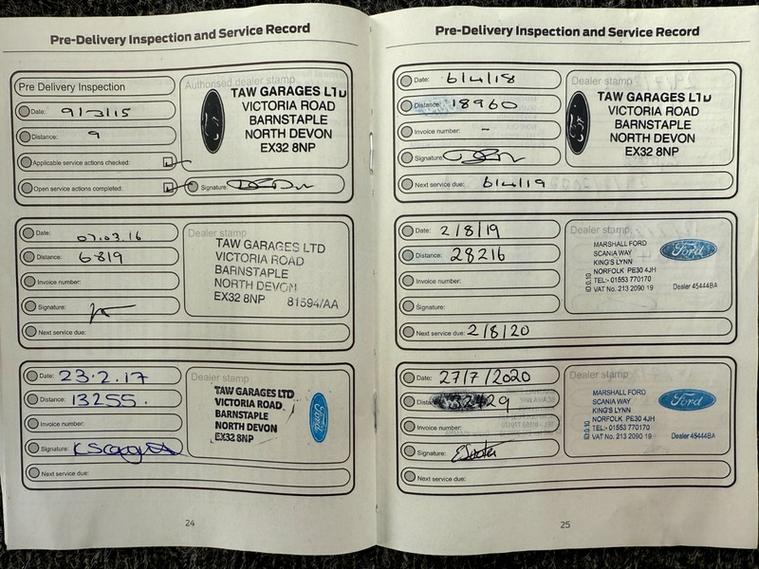 Pre-Delivery Inspection and Service Record
Pre Delivery Inspection
Date: 9/3/15
Distance: 9
Applicable service actions checked:
Open service actions completed:
Authorised dealer stamp
TAW GARAGES LTD
VICTORIA ROAD
BARNSTAPLE
NORTH DEVON
EX32 8NP
Signature:
Date: 07.03.16
Distance: 6819
Invoice number:
Signature:
Next service due:
Dealer stamp
TAW GARAGES LTD
VICTORIA ROAD
BARNSTAPLE
NORTH DEVON
EX32 8NP 81594/AA
Date: 23.2.17
Distance: 13255.
Invoice number:
Signature:
Next service due:
Dealer stamp
TAW GARAGES LTD
VICTORIA ROAD
BARNSTAPLE
NORTH DEVON
EX32 8NP
Ford
24
Pre-Delivery Inspection and Service Record
Date: 6/4/18
Distance: 18960
Invoice number: -
Signature:
Next service due: 6/4/19
Dealer stamp
TAW GARAGES LTD
VICTORIA ROAD
BARNSTAPLE
NORTH DEVON
EX32 8NP
Date: 2/8/19
Distance: 28216
Invoice number:
Signature:
Next service due: 2/8/20
Dealer stamp
MARSHALL FORD
SCANIA WAY
KING'S LYNN
NORFOLK PE30 4JH
TEL:- 01553 770170
VAT No. 213 2090 19
Ford
Dealer 45444BA
Date: 27/7/2020
Distance: 32429
Invoice number:
Signature:
Next service due:
Dealer stamp
MARSHALL FORD
SCANIA WAY
KING'S LYNN
NORFOLK PE30 4JH
TEL:- 01553 770170
VAT No. 213 2090 19
Ford
Dealer 45444BA
25